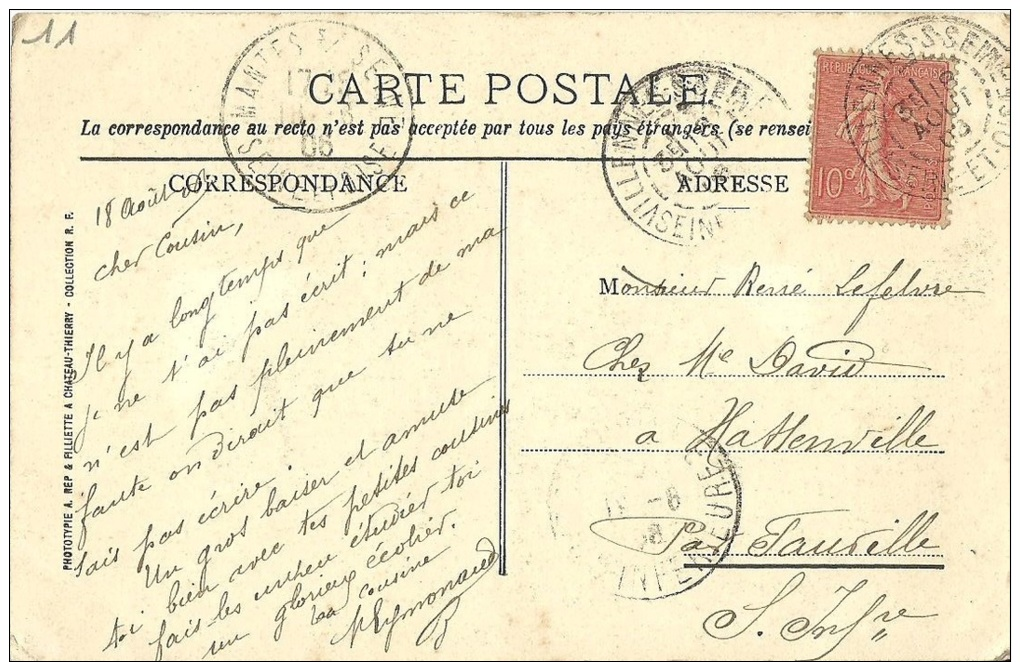 11
CARTE POSTALE
La correspondance au recto n'est pas acceptée par tous les pays étrangers. (se rensei
CORRESPONDANCE
18 Août
cher Cousin,
Il y a longtemps que
je ne t'ai pas écrit ; mais ce
n'est pas pleinement de ma
faute on dirait que tu ne
sais pas écrire
Un gros baiser et amuse
toi bien avec tes petites cousins
fais les un peu étudier toi
un glorieux écolier.
ta cousine
PHOTOTYPIE A. REP & FILLIETTE A CHATEAU-THIERRY - COLLECTION R. F.
MANTES S/ SEINE
SEINE ET OISE
ADRESSE
REPUBLIQUE FRANÇAISE
10c
Monsieur René Lefebvre
Chez Me David
a Hattenville
Par Fauville
S. Infre